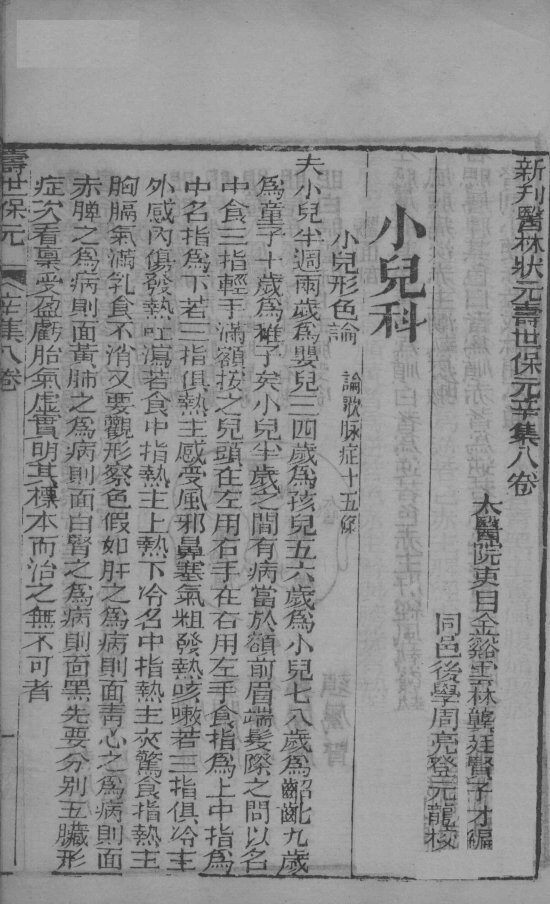 新刋醫林狀元壽世保元辛集八卷
太醫院吏目金谿雲林龔廷賢子才編
同邑後學周亮登元龍校
小兒科
小兒形色論 論歌脉症十五條
夫小兒半週兩歲爲嬰兒三四歲爲孩兒五六歲爲小兒七八歲爲齠齔九歲
爲童子十歲爲稚子矣小兒半歲之間有病當於額前眉端髮際之間以名
中食三指輕手滿額按之兒頭在左用右手在右用左手食指爲上中指爲
中名指爲下若三指俱熱主感受風邪鼻塞氣粗發熱咳嗽若三指俱冷主
外感內傷發熱吐瀉若食中指熱主上熱下冷名中指熱主夾驚食指熱主
胸膈氣滿乳食不消又要觀形察色假如肝之爲病則面靑心之爲病則面
赤脾之爲病則面黃肺之爲病則面白腎之爲病則面黑先要分别五臟形
症次看稟受盈虧胎氣虛實明其標本而治之無不可者
壽世保元 辛集八卷 一